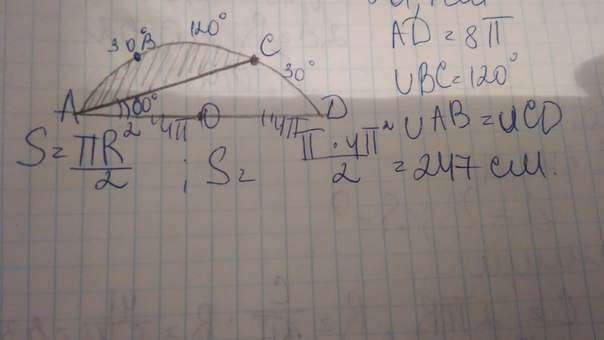 120°
30° B
C
30°
A
60°
2
4π
O
4π
D
AD = 8π
∪BC = 120°
∪AB = ∪CD
S = πR² / 2 ; S = π · 4π² / 2 = 247 см.